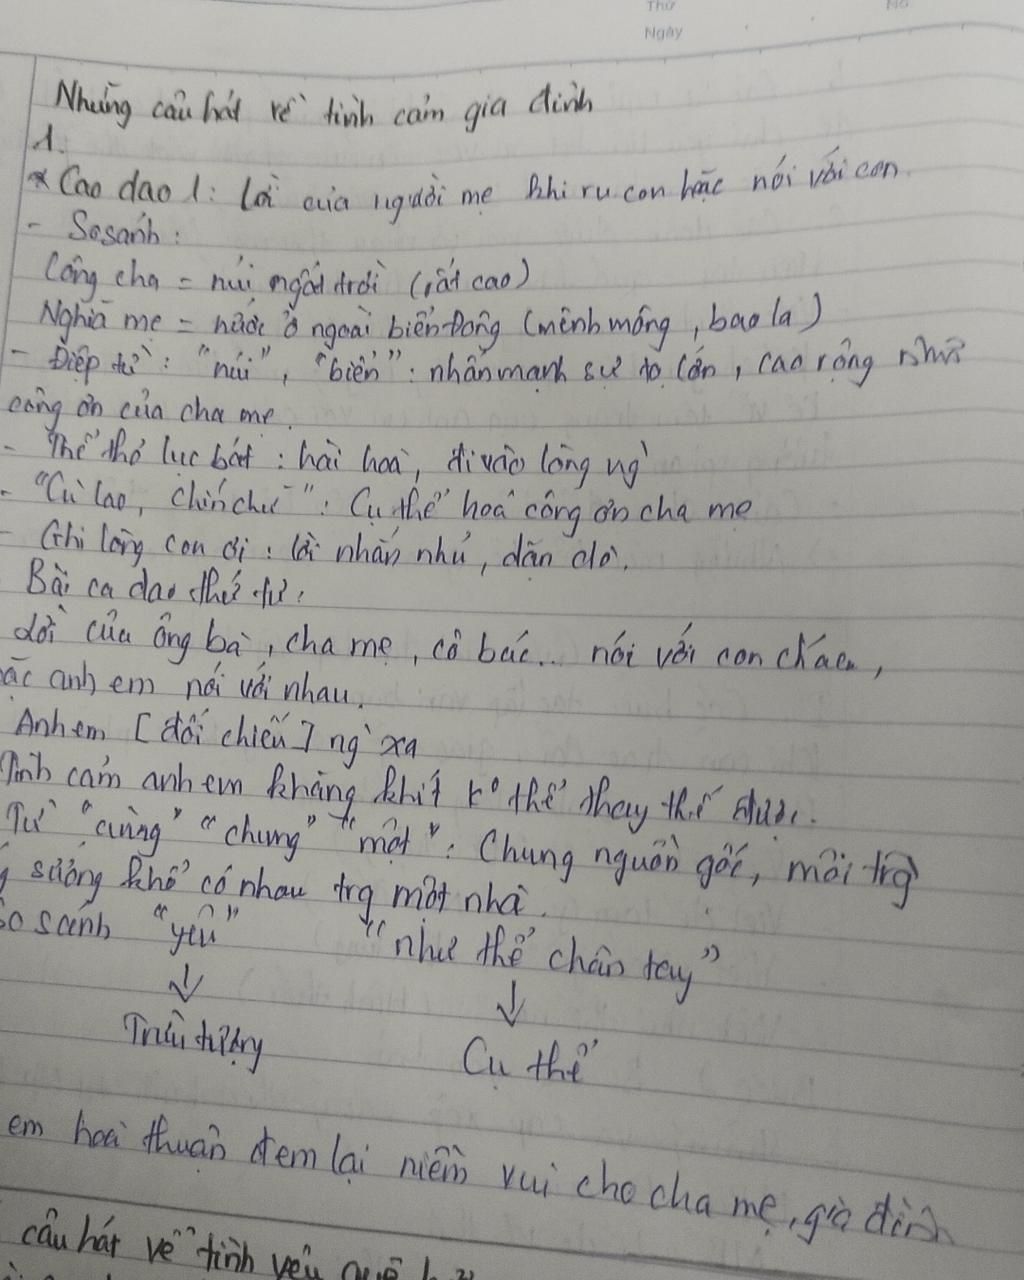 Thứ
Ngày
Những câu hát về tình cảm gia đình
1.
* Cao dao 1: Lời của người mẹ khi ru con hặc nói với con.
- So sánh:
Công cha = núi ngất trời (rất cao)
Nghĩa mẹ = nước ở ngoài biển Đông (mênh mông, bao la)
- Điệp từ: "núi", "biển": nhấn mạnh sự to lớn, cao rộng như
công ơn của cha mẹ.
- Thể thơ lục bát: hài hoà, đi vào lòng ng`
- "Cù lao, chín chữ": Cụ thể hoá công ơn cha mẹ
- Ghi lòng con ơi: lời nhắn nhủ, dặn dò.
Bài ca dao thứ tư:
Lời của ông bà, cha mẹ, cô bác... nói với con cháu,
ặc anh em nói với nhau.
Anh em [đối chiếu] ng` xa
Tình cảm anh em khăng khít ko thể thay thế được.
Từ "cùng" "chung" "một": Chung nguồn gốc, môi trg`
g sướng khổ có nhau trg một nhà.
So sánh "yêu" "như thể chân tay"
↓ ↓
Trừu tượng Cụ thể
em hoà thuận đem lại niềm vui cho cha mẹ, gia đình
câu hát về tình yêu quê